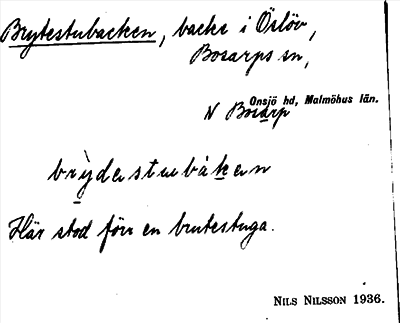 Brytestubacken, backe i Öslöv,
Bosarps sn,
Onsjö hd, Malmöhus län.
N Bosarp
brỳdastubákan
Här stod förr en brutestuga.
NILS NILSSON 1936.